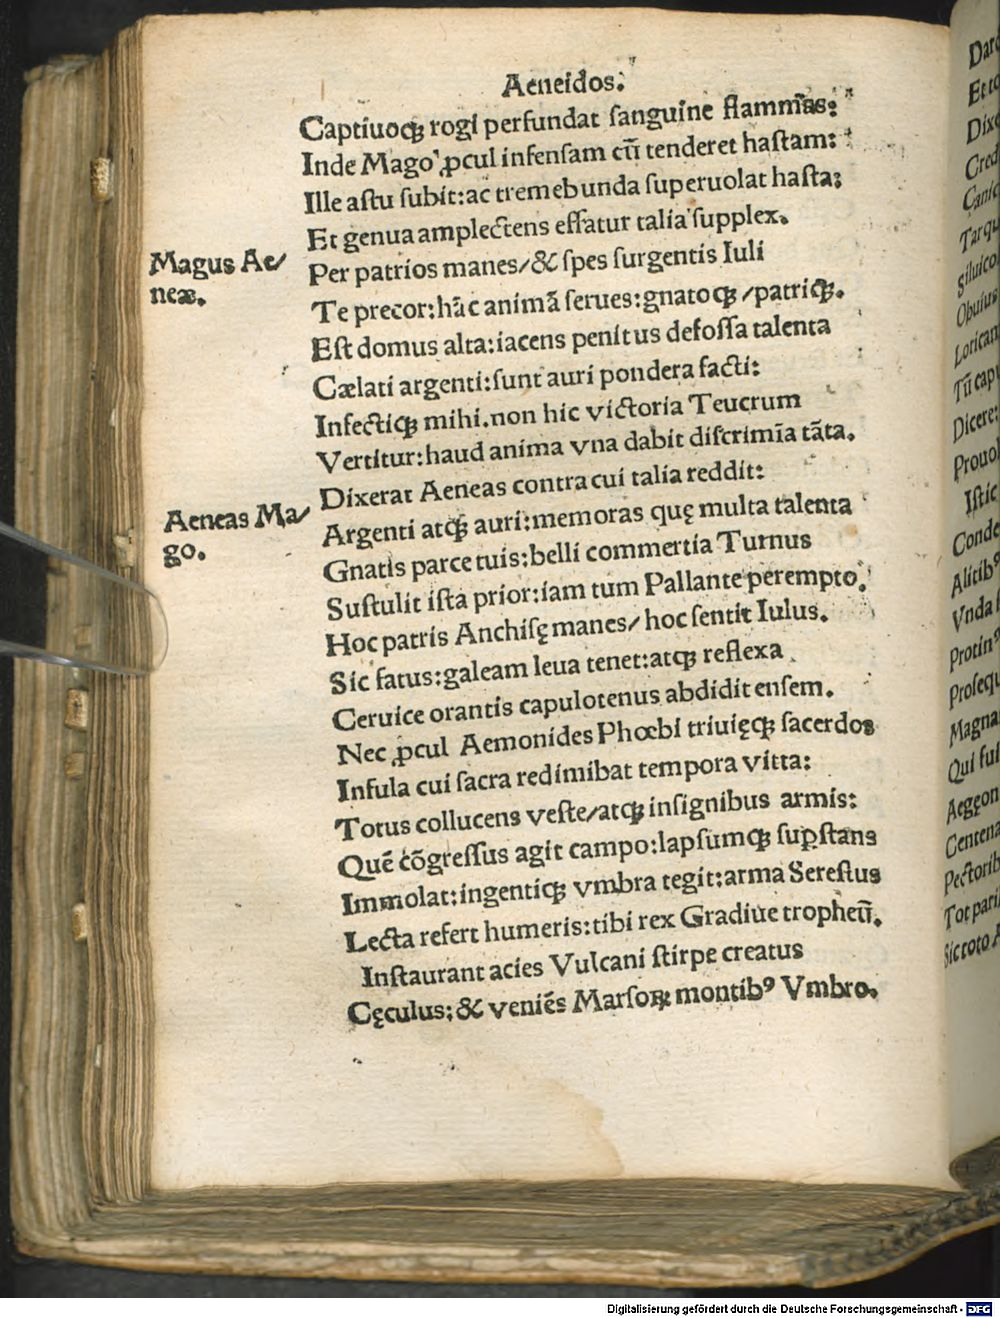 Aeneidos.
Captiuoqꝫ rogi perfundat ſanguine flammas:
Inde Mago ꝓcul infenſam cū tenderet haſtam:
Ille aſtu ſubit: ac tremebunda ſuperuolat haſta;
Et genua amplectens effatur talia ſupplex.
Magus Ae/
neæ.
Per patrios manes/& ſpes ſurgentis Iuli
Te precor: hāc animā ſerues: gnatoqꝫ/patriqꝫ.
Eſt domus alta: iacens penitus defoſſa talenta
Cælati argenti: ſunt auri pondera facti:
Infectiqꝫ mihi. non hic victoria Teucrum
Vertitur: haud anima vna dabit diſcrimīa tāta.
Dixerat Aeneas contra cui talia reddit:
Aeneas Ma/
go.
Argenti atqꝫ auri: memoras quę multa talenta
Gnatis parce tuis: belli commertia Turnus
Suſtulit iſta prior: iam tum Pallante perempto.
Hoc patris Anchiſę manes/ hoc ſentit Iulus.
Sic fatus: galeam leua tenet: atqꝫ reflexa
Ceruice orantis capulotenus abdidit enſem.
Nec ꝓcul Aemonides Phœbi triuięqꝫ ſacerdos
Infula cui ſacra redimibat tempora vitta:
Totus collucens veſte/atqꝫ inſignibus armis:
Quē cōgreſſus agit campo: lapſumqꝫ ſuꝑſtans
Immolat: ingentiqꝫ vmbra tegit: arma Sereſtus
Lecta refert humeris: tibi rex Gradiue tropheū.
Inſtaurant acies Vulcani ſtirpe creatus
Cęculus; & veniēs Marſoꝝ montibꝰ Vmbro.
Et
Dixe
Cred
Tarqu
Siluico
Obuius
Lorican
Tū capu
Dicere:
Prouol
Iſtic
Conde
Alitibꝰ
Vnda
Protinꝰ
Proſequ
Magna
Qui fui
Aegęon
Centena
Pectorib
Tot pari
Sic toto A
Digitalisierung gefördert durch die Deutsche Forschungsgemeinschaft - DFG